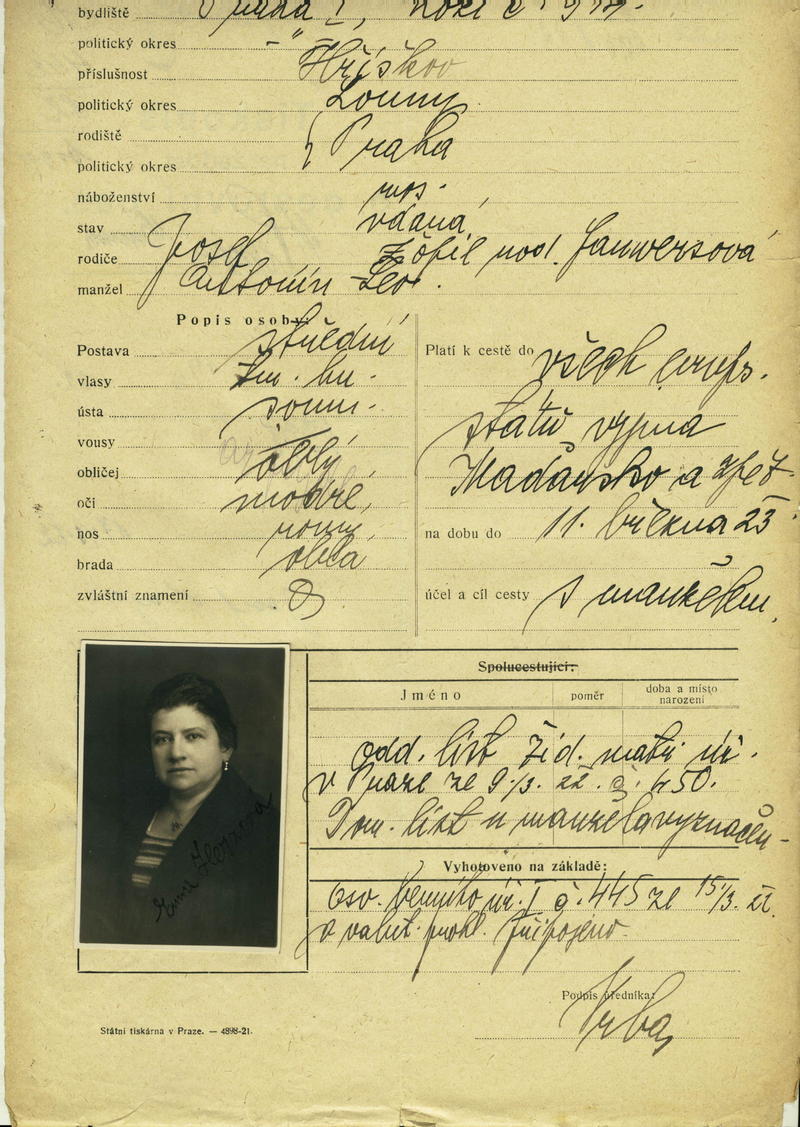 bydliště Praha I,
politický okres - " -
příslušnost Hříškov
politický okres Louny
rodiště Praha
politický okres
náboženství mos.
stav vdaná
rodiče Josef Žofie roz.
manžel Antonín Leo.
Popis osoby:
Postava střední
vlasy tm. hn.
ústa soum.
vousy
obličej oblý
oči modré,
nos soum.
brada oblá
zvláštní znamení
Platí k cestě do všech evrops.
států vyjma
Maďarsko a zpět
na dobu do 11. března 23
účel a cíl cesty s manželem,
Spolucestující:
Jméno poměr doba a místo narození
odd. list žid. matr. úř.
v Praze ze 9./3. 22. č. 450.
Dom. list u manžela vyznačen-
Vyhotoveno na základě:
Osv. berního úř. I č. 445 ze 15/3. 22.
a valut. prohl. připojeno.
Podpis úředníka:
Vrba
Státní tiskárna v Praze. — 4898-21.